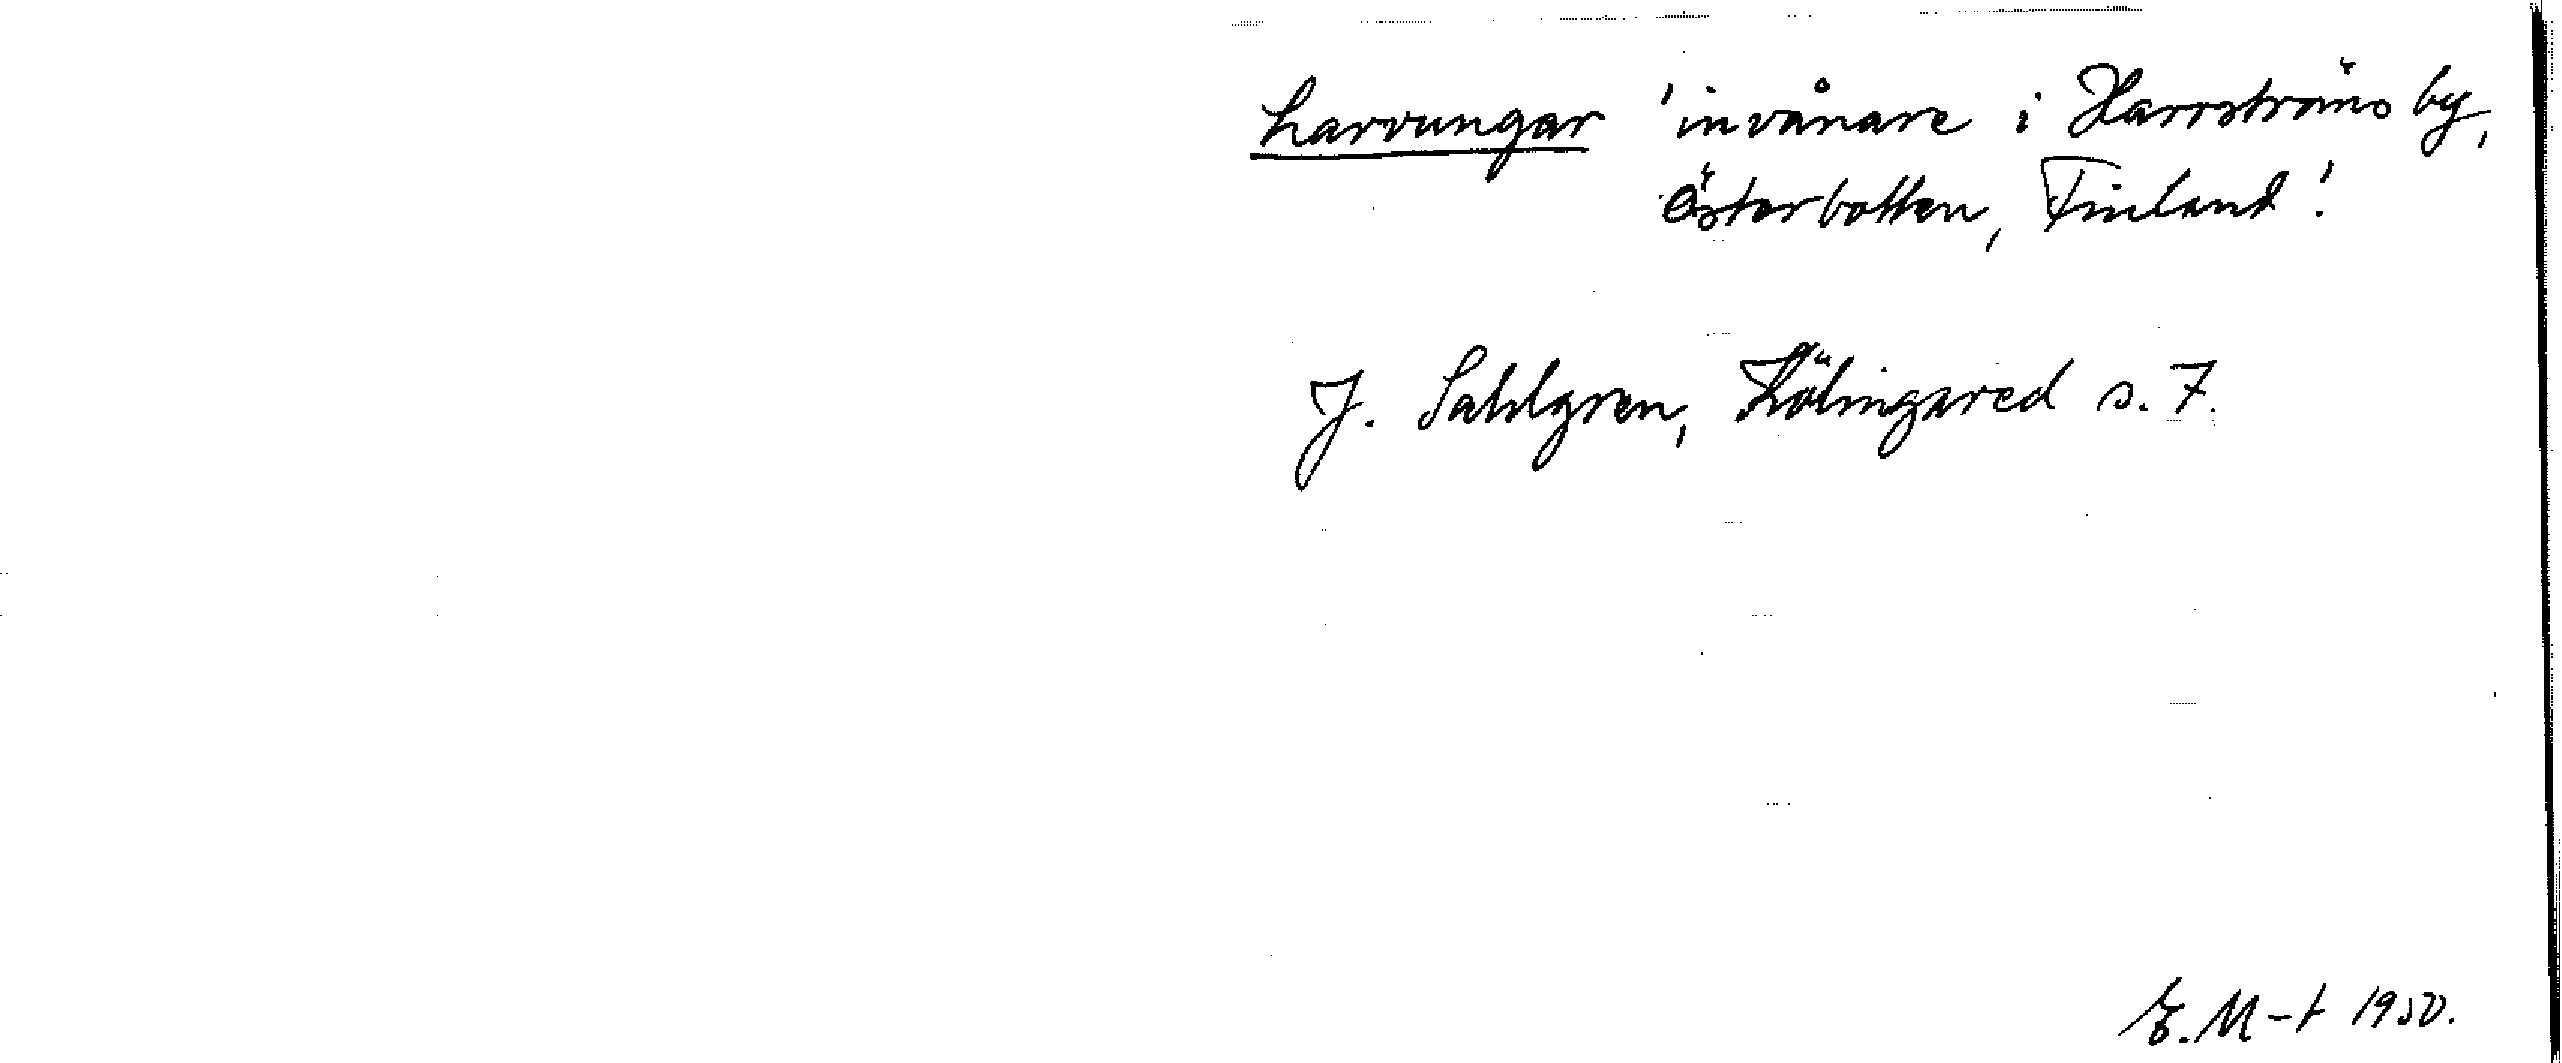 harrungar 'invånare i Harrströms by,
Österbotten, Finland'.
J. Sahlgren, Hölingared s. 7.
E. M-t 1950.